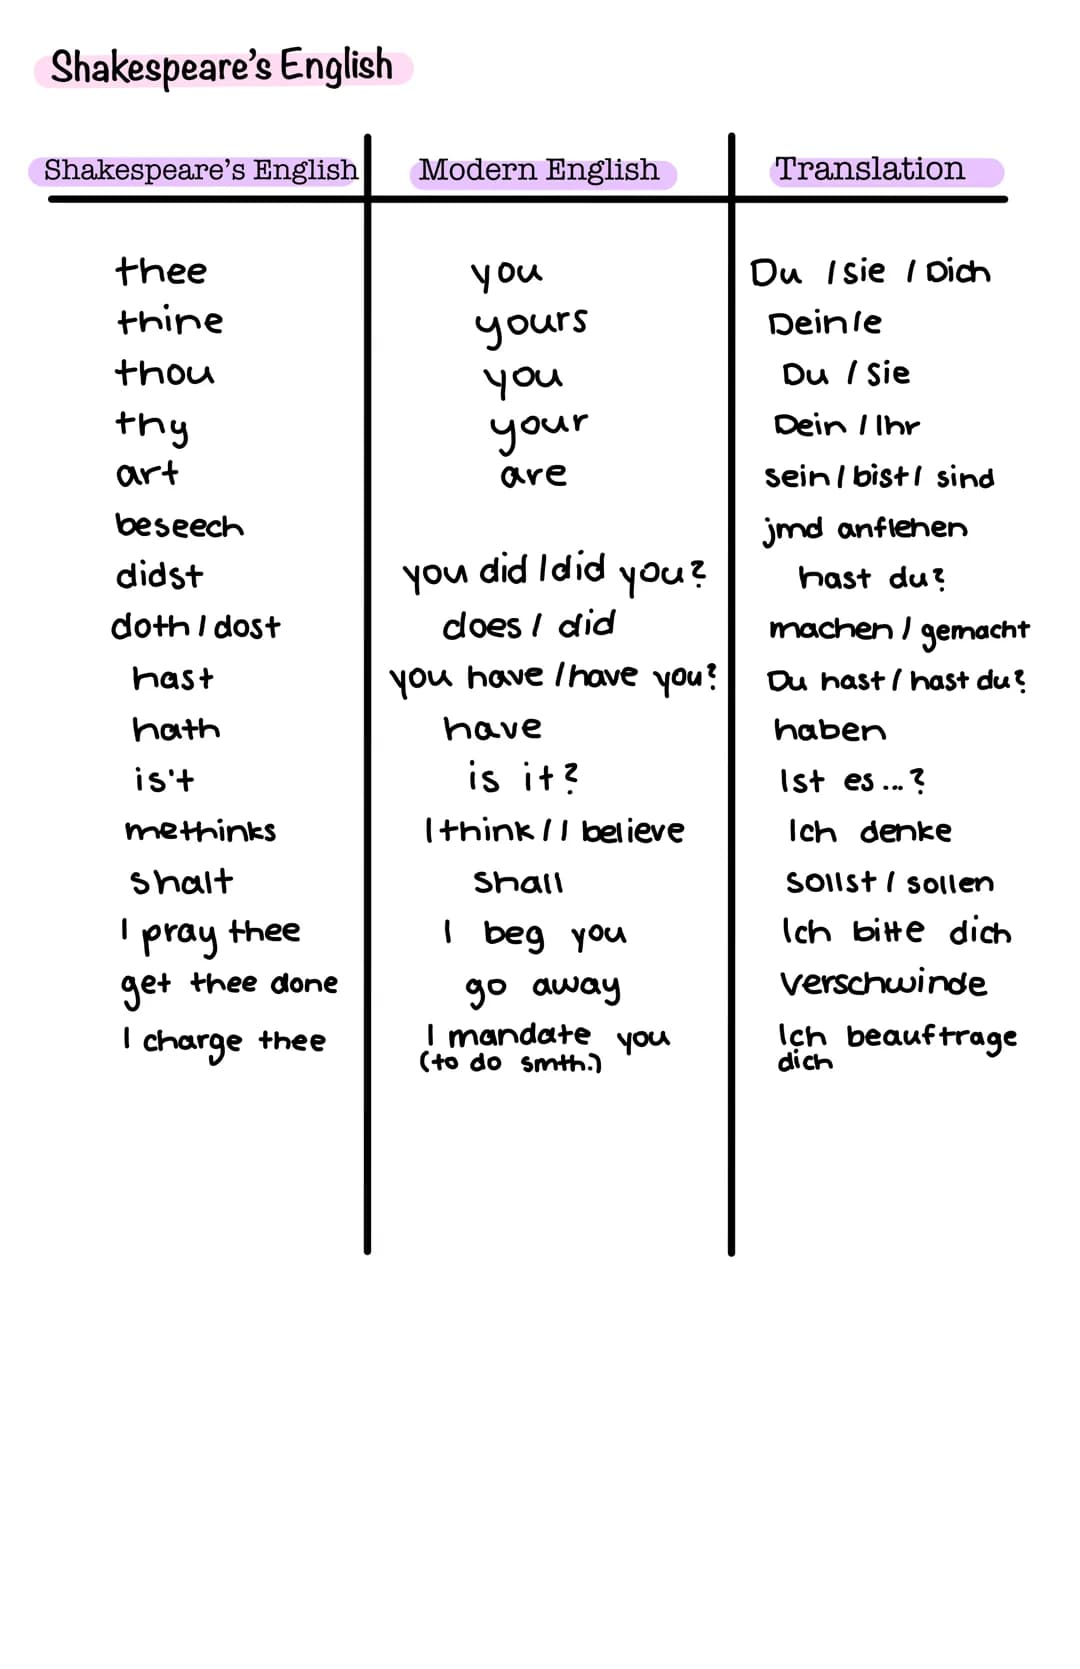 Shakespeare's English
Shakespeare's English Modern English Translation
thee you Du / sie / Dich
thine yours Dein/e
thou you Du / sie
thy your Dein / Ihr
art are sein / bist / sind
beseech jmd anflehen
didst you did / did you? hast du?
doth / dost does / did machen / gemacht
hast you have / have you? Du hast / hast du?
hath have haben
is't is it? Ist es ...?
methinks I think / I believe Ich denke
shalt shall sollst / sollen
I pray thee I beg you Ich bitte dich
get thee done go away verschwinde
I charge thee I mandate you Ich beauftrage
(to do smth.) dich